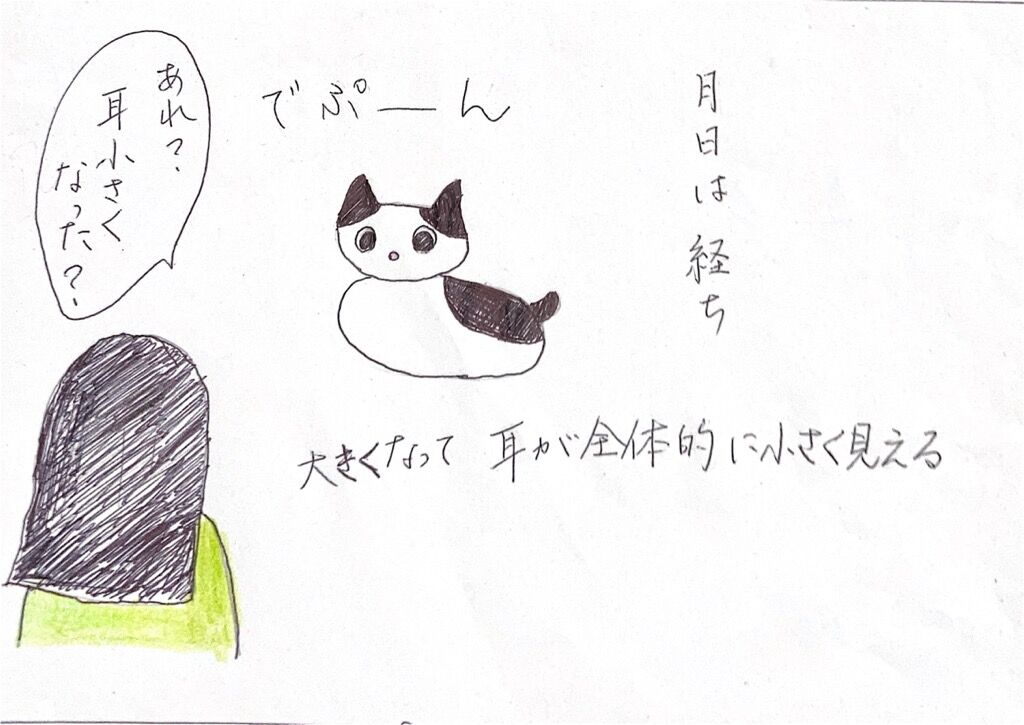 月日は経ち
でぷーん
あれ？
耳小さく
なった？
大きくなって 耳が全体的に小さく見える